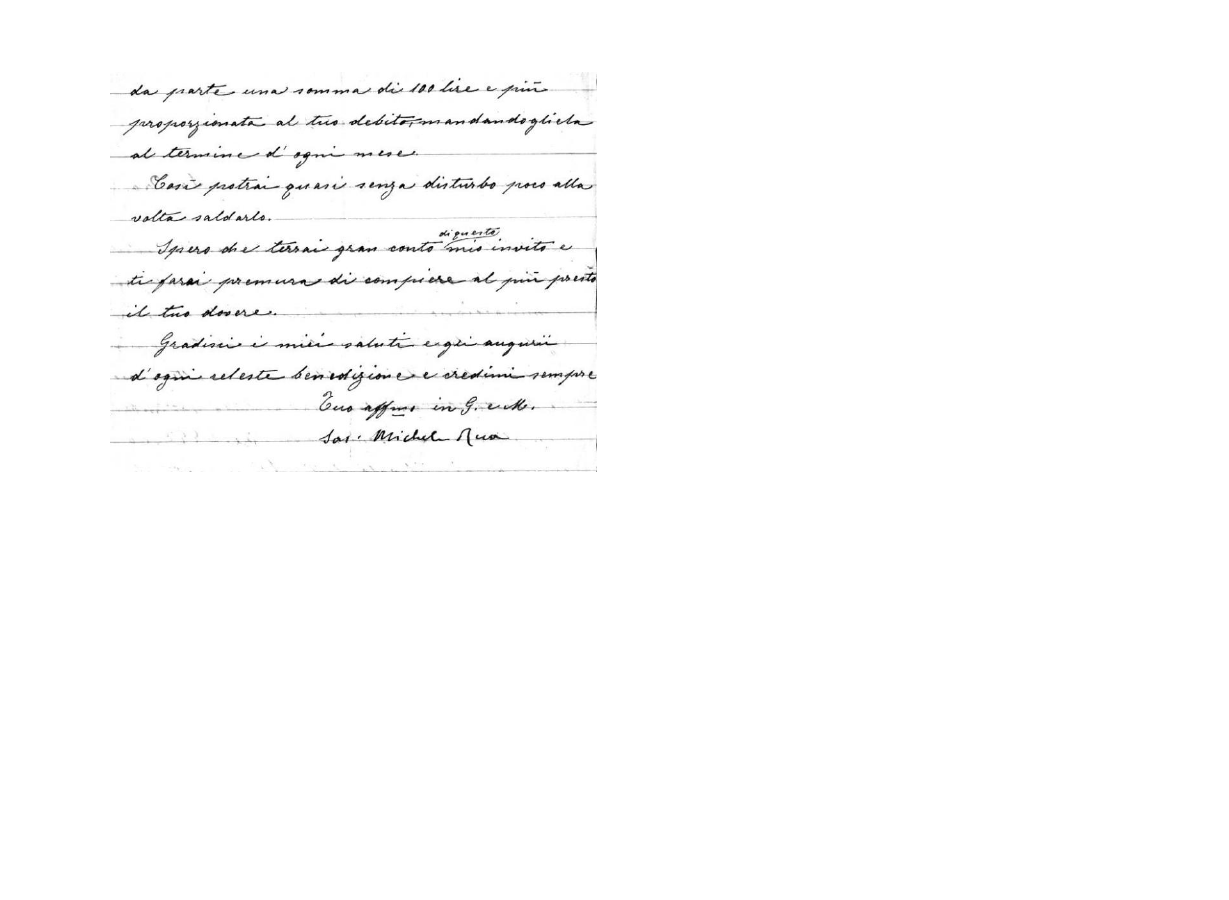 da parte una somma di 100 lire e più
proporzionata al tuo debito, mandandogliela
al termine d'ogni mese.
Così potrai quasi senza disturbo poco alla
volta saldarlo.
Spero che terrai gran conto di questo mio invito e
ti farai premura di compiere al più presto
il tuo dovere.
Gradisci i miei saluti e gli augurii
d'ogni celeste benedizione e credimi sempre
Tuo affmo in G. e M.
Sac. Michele Rua